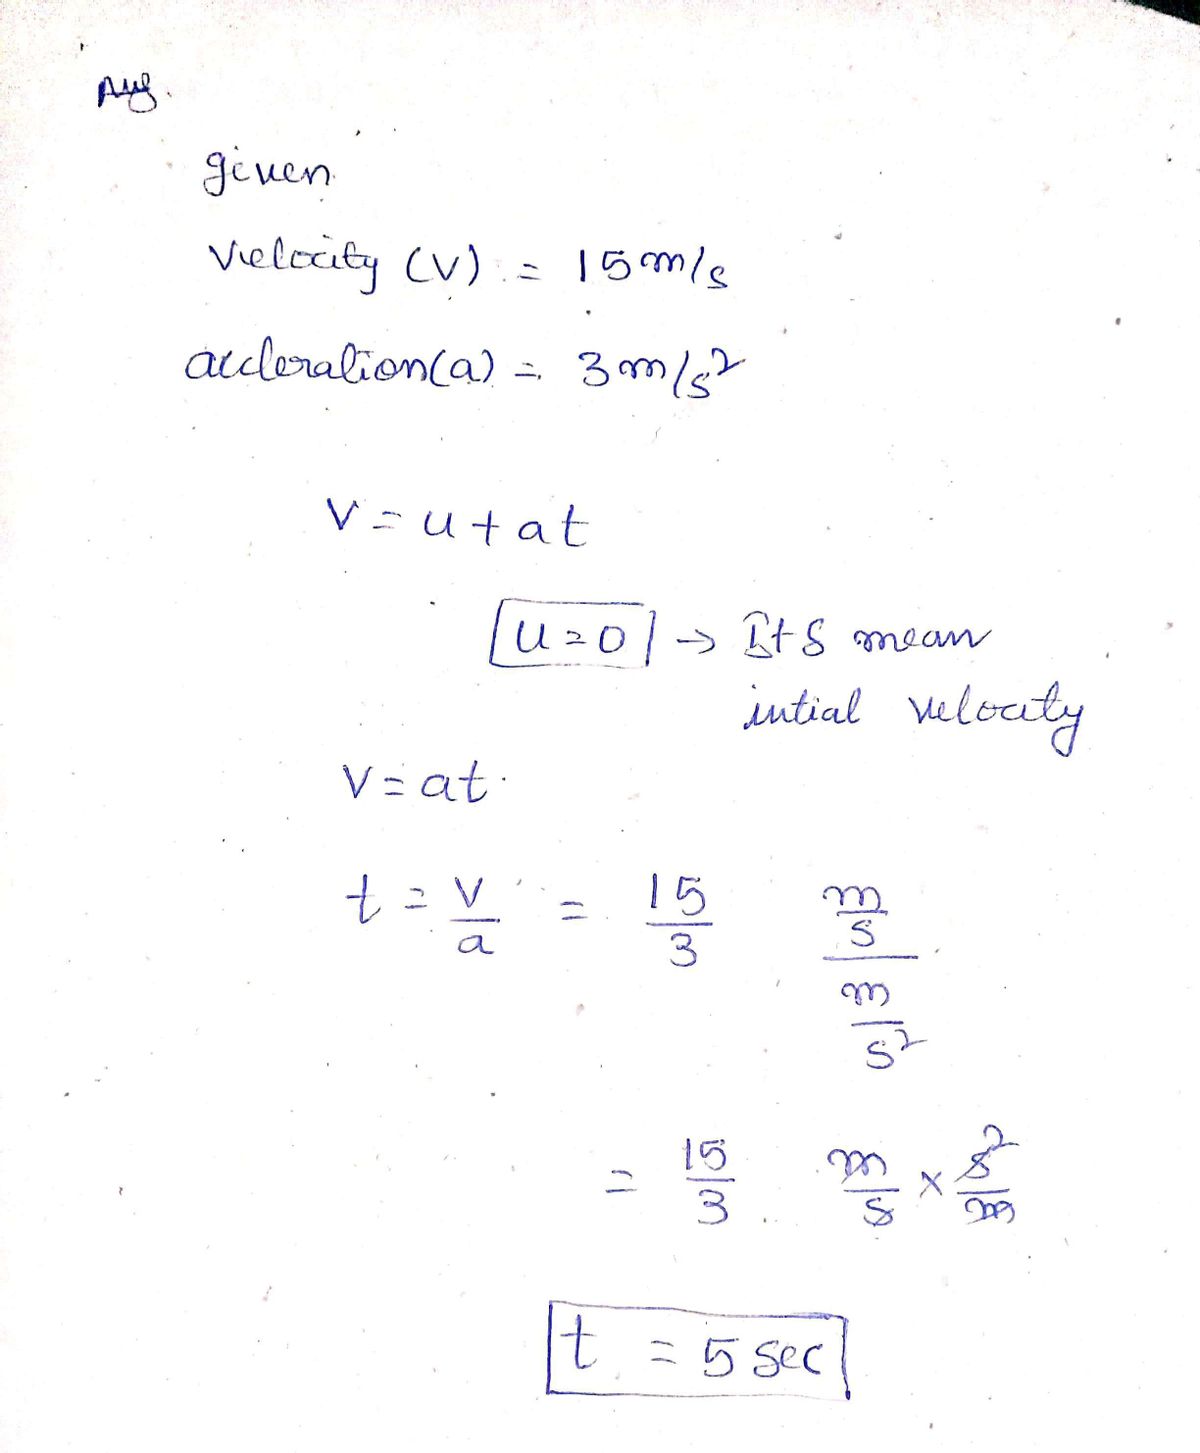 Ans.
given
Velocity (V) = 15 m/s
accleration(a) = 3 m/s²
V = u + at
u = 0 → Its mean
intial velocity
V = at
t = V/a = 15/3 (m/s)/(m/s²)
= 15/3 m/s × s²/m
t = 5 sec